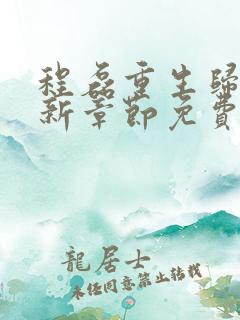 程磊重生归
新章節免費
龍居士
未经同意禁止转载